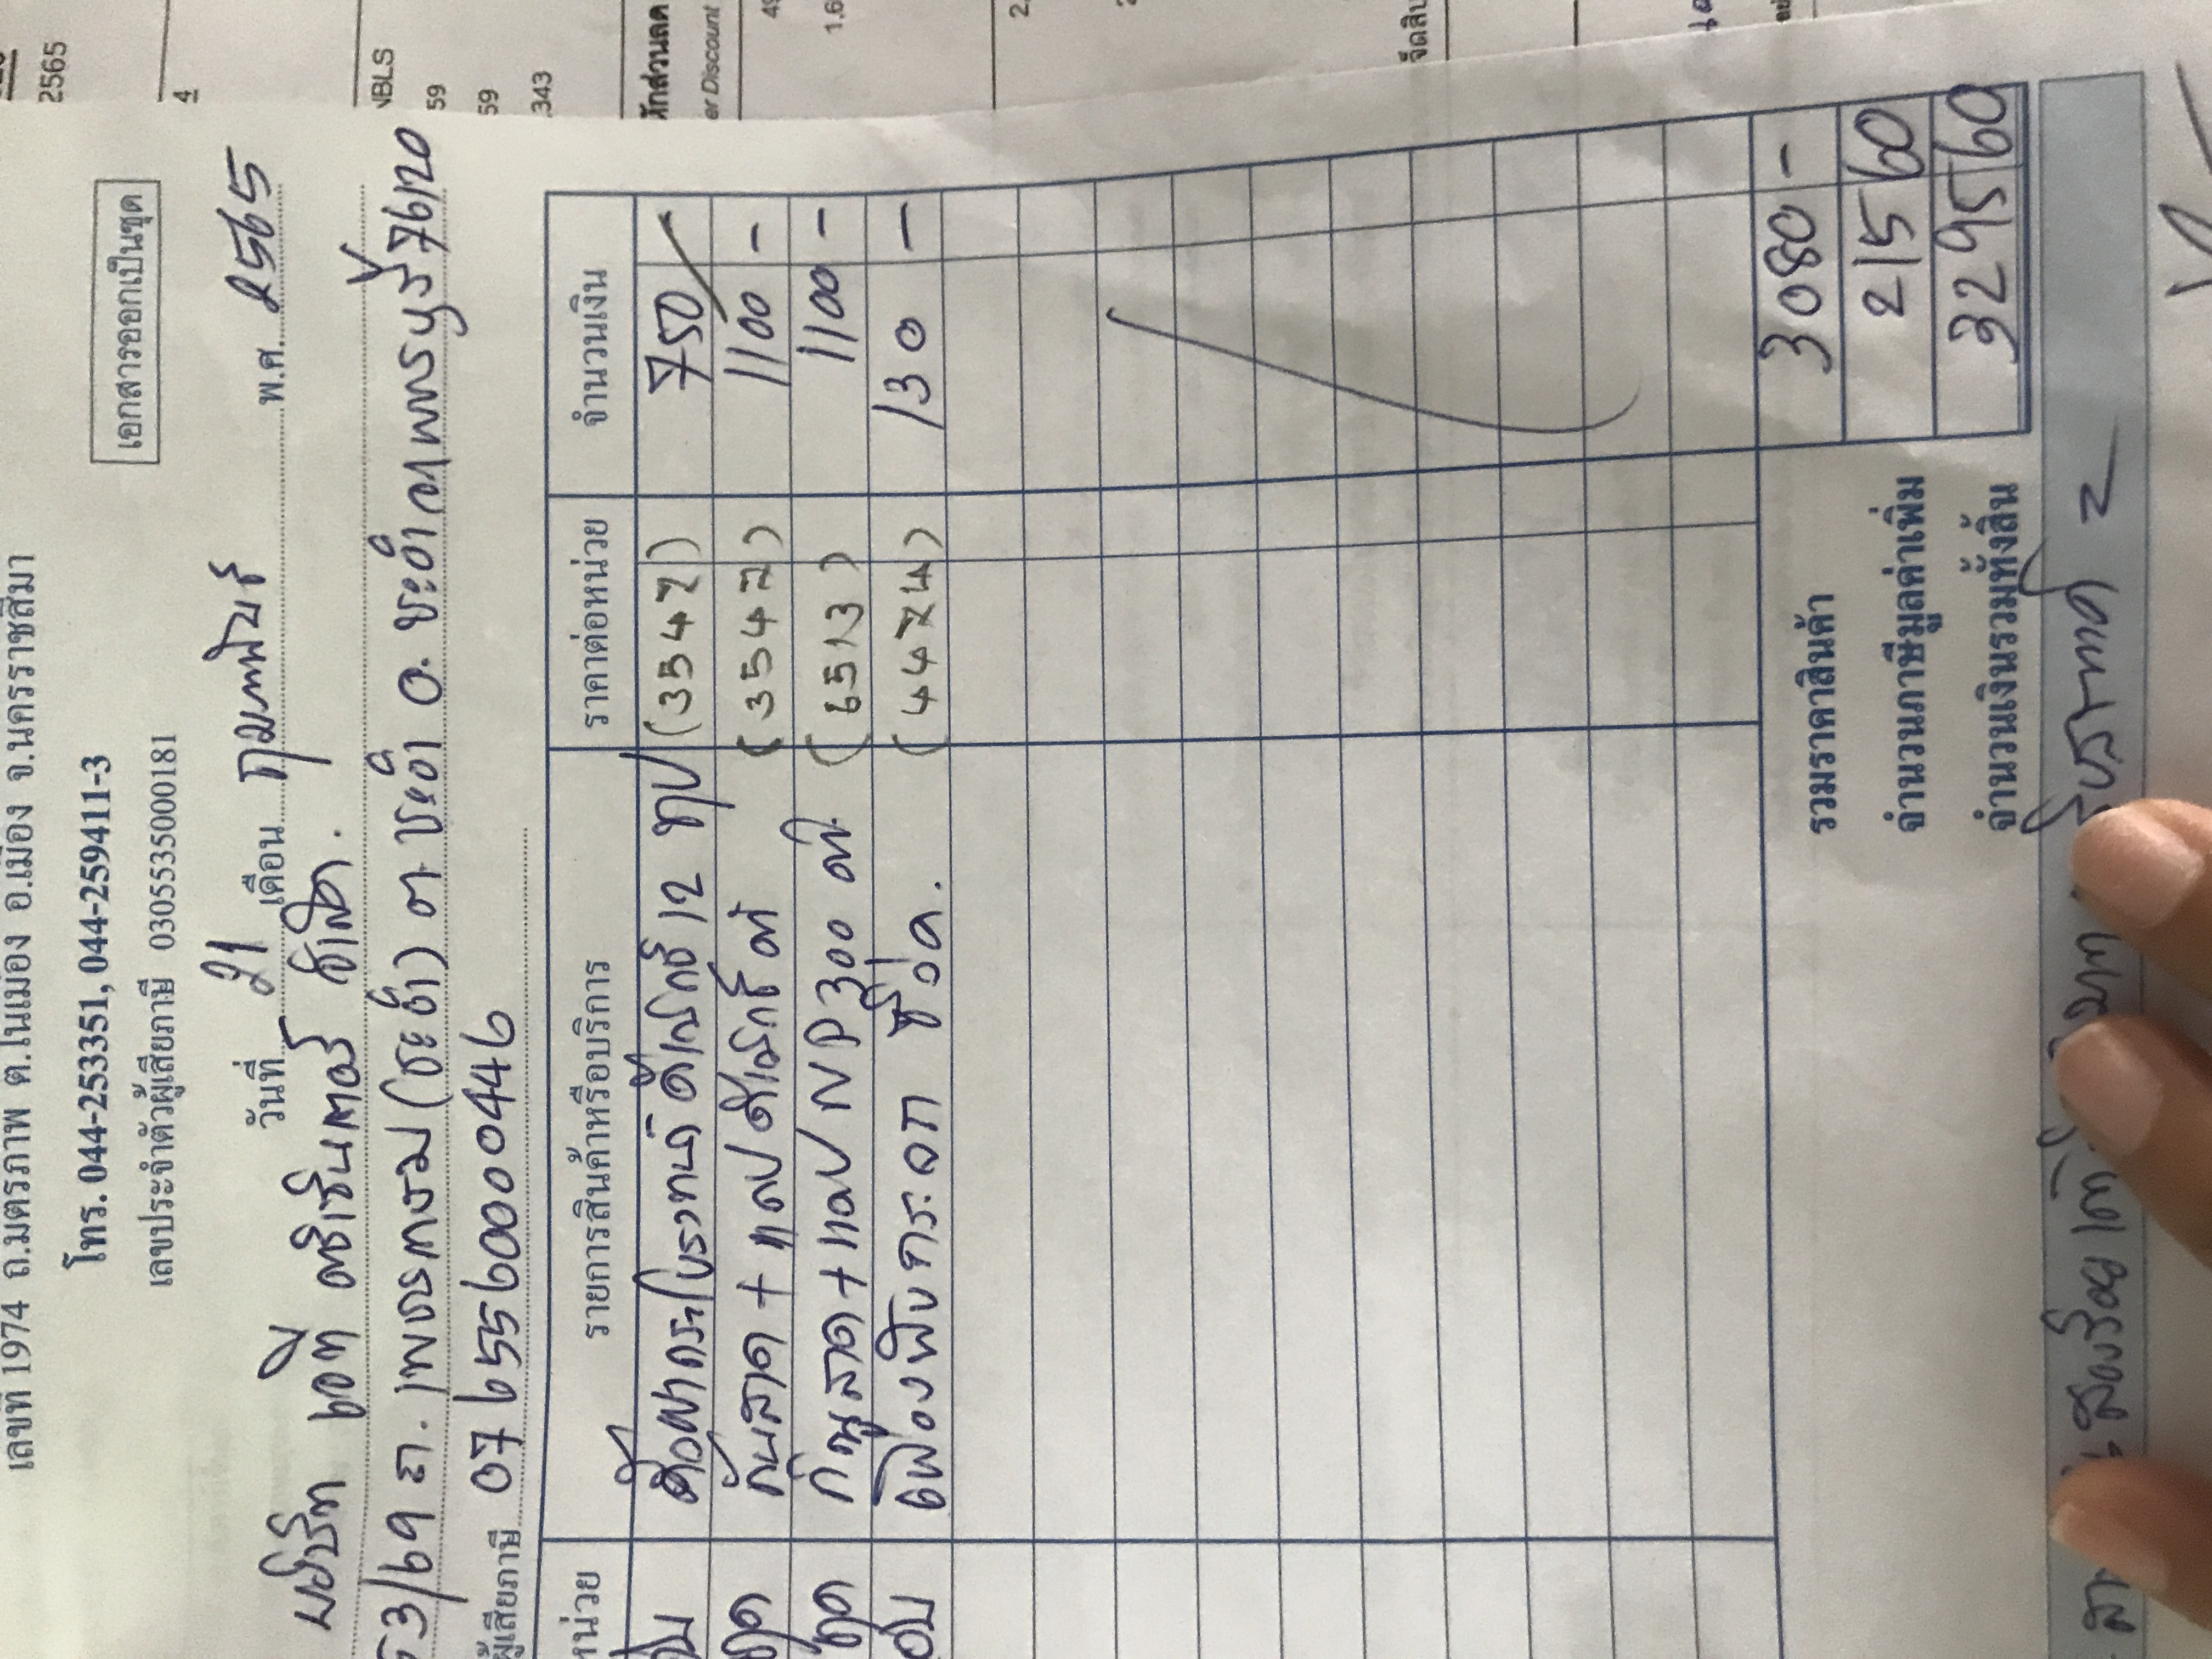 เลขที่ 1974 ถ.มิตรภาพ ต.ในเมือง อ.เมือง จ.นครราชสีมา
โทร. 044-253351, 044-259411-3
เลขประจำตัวผู้เสียภาษี 0305535000181
เอกสารออกเป็นชุด
วันที่ 21 เดือน กุมภาพันธ์ พ.ศ. 2565
บริษัท เอที อาร์เซ็นเตอร์ จำกัด.
53/69 ถ. เพชรเกษม (ชะอำ) ต. ชะอำ อ. ชะอำ จ. เพชรบุรี 76120
ผู้เสียภาษี 0765560000446
หน่วย รายการสินค้าหรือบริการ ราคาต่อหน่วย จำนวนเงิน
ฝากระโปรงหน้า ดีแม็กซ์ 12 (3547) 750
ชุด กันสาด + แคป ดีแม็กซ์ (3547) 1100 -
ชุด กันสาด + แคป NP300 (6513) 1100 -
มอเตอร์พับกระจก (4474) 130 -
รวมราคาสินค้า 3080 -
จำนวนภาษีมูลค่าเพิ่ม 215 60
จำนวนเงินรวมทั้งสิ้น 3295 60
2565
4
NBLS
59
59
343
หักส่วนลด
er Discount